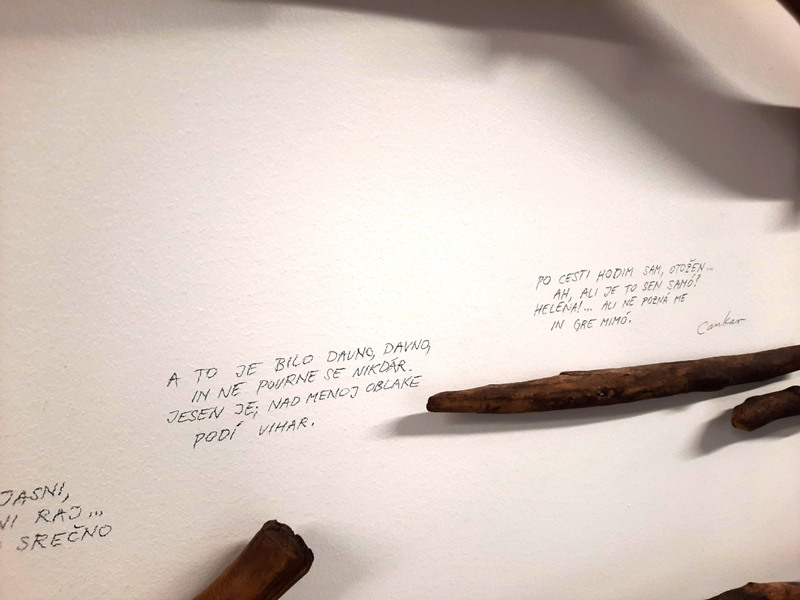 JASNI,
NI RAJ...
SREČNO
A TO JE BILO DAVNO, DAVNO,
IN NE POVRNE SE NIKDÁR.
JESEN JE; NAD MENOJ OBLAKE
PODÍ VIHAR.
PO CESTI HODIM SAM, OTOŽEN...
AH, ALI JE TO SEN SAMÓ?
HELENA!... ALI NE POZNÁ ME
IN GRE MIMÓ.
Cankar